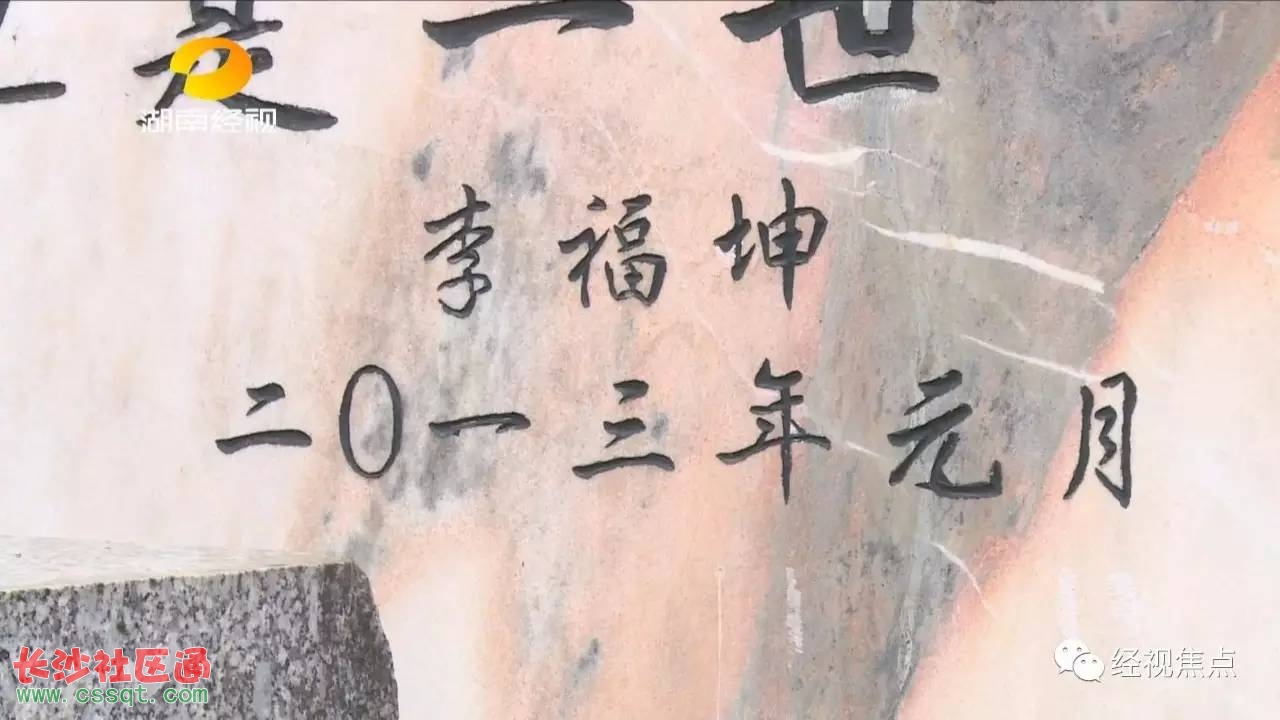 是一世
湖南经视
李福坤
二0一三年元月
长沙社区通
www.cssqt.com
经视焦点